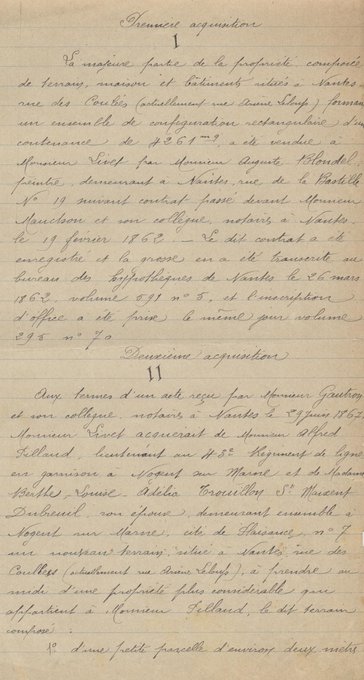 Première acquisition
I
La majeure partie de la propriété composée
de terrain, maison et bâtiments situés à Nantes
rue des Coulées (actuellement rue Arsène Leloup) formant
un ensemble de configuration rectangulaire d'une
contenance de 4261 mq, a été vendue à
Monsieur Livet par Monsieur Auguste Blondel
peintre, demeurant à Nantes, rue de la Bastille
No 19 suivant contrat passé devant Monsieur
et son collègue, notaires à Nantes
le 19 février 1862. — Le dit contrat a été
enregistré et la grosse en a été transcrite au
bureau des hypothèques de Nantes le 26 mars
1862, volume 691 no 5, et l'inscription
d'office a été prise le même jour volume
295 no 70
Deuxième acquisition
II
Aux termes d'un acte reçu par Monsieur Gautron
et son collègue notaires à Nantes le 29 juin 1867
Monsieur Livet acquérait de Monsieur Alfred
lieutenant au Régiment de ligne
en garnison à Nogent sur Marne et de Madame
Berthe Louise Adélia Trouillon St Maixent
Dubreuil, son épouse, demeurant ensemble à
Nogent sur Marne, cité de Plaisance, no 7
un nouveau terrain, situé à Nantes, rue des
Coulées (actuellement rue Arsène Leloup), à prendre au
midi d'une propriété plus considérable qui
appartient à Monsieur le dit terrain
composé :
1o d'une petite parcelle d'environ deux mètres